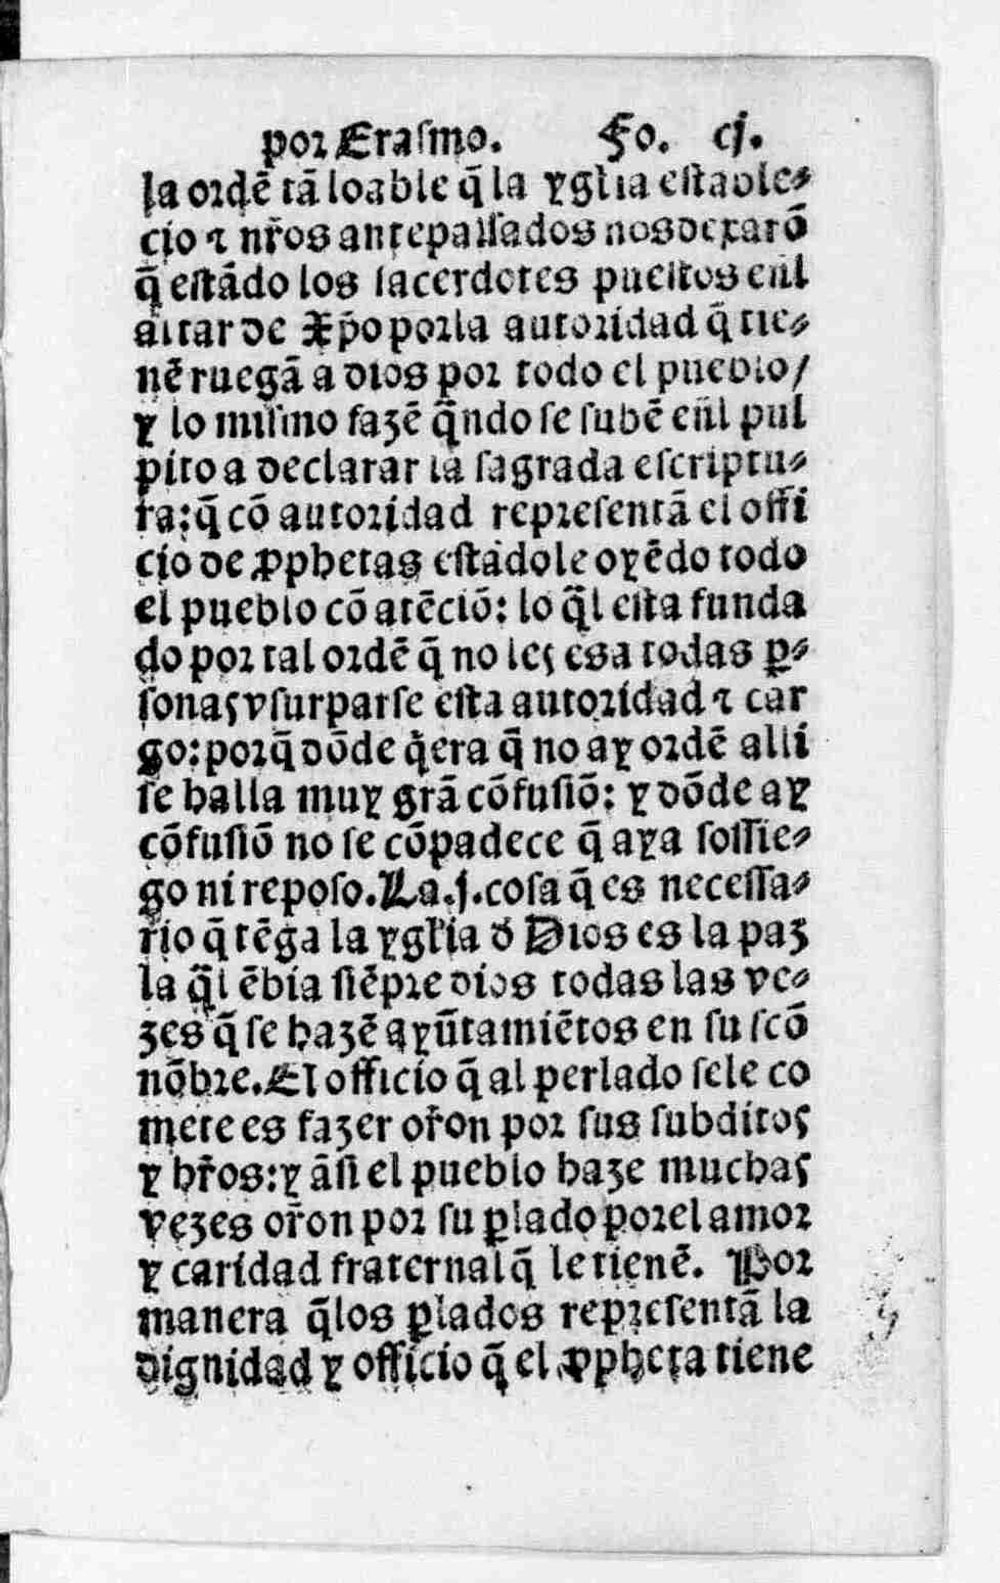 por Erasmo. Fo. cj.
la ordẽ tã loable q̃ la ygľia estable⸗
cio ⁊ nr̃os antepassados nos dexarõ
q̃ estãdo los sacerdotes puestos eñl
altar de Xp̃o por la autoridad q̃ tie⸗
nẽ ruegã a dios por todo el pueblo/
y lo mismo fazẽ q̃ndo se subẽ eñl pul
pito a declarar la sagrada escriptu⸗
ra: q̃ cõ autoridad representã el offi
cio de ꝓphetas estãdole oyẽdo todo
el pueblo cõ atẽciõ: lo q̃l esta funda
do por tal ordẽ q̃ no les es a todas ꝑ⸗
sonas vsurparse esta autoridad ⁊ car
go: porq̃ dõde q̃era q̃ no ay ordẽ alli
se halla muy grã cõfusiõ: y dõde ay
cõfusiõ no se cõpadece q̃ aya sossie⸗
go ni reposo. La .j. cosa q̃ es necessa⸗
rio q̃ tẽga la ygľia d̃ Dios es la paz
la q̃l ẽbia siẽpre dios todas las ve⸗
zes q̃ se hazẽ ayũtamiẽtos en su scõ
nõbre. El officio q̃ al perlado se le co
mete es fazer or̃on por sus subditos
y hr̃os: y ãsi el pueblo haze muchas
vezes or̃on por su ꝑlado por el amor
y caridad fraternal q̃ le tienẽ. Por
manera q̃ los ꝑlados representã la
dignidad y officio q̃ el ꝓpheta tiene